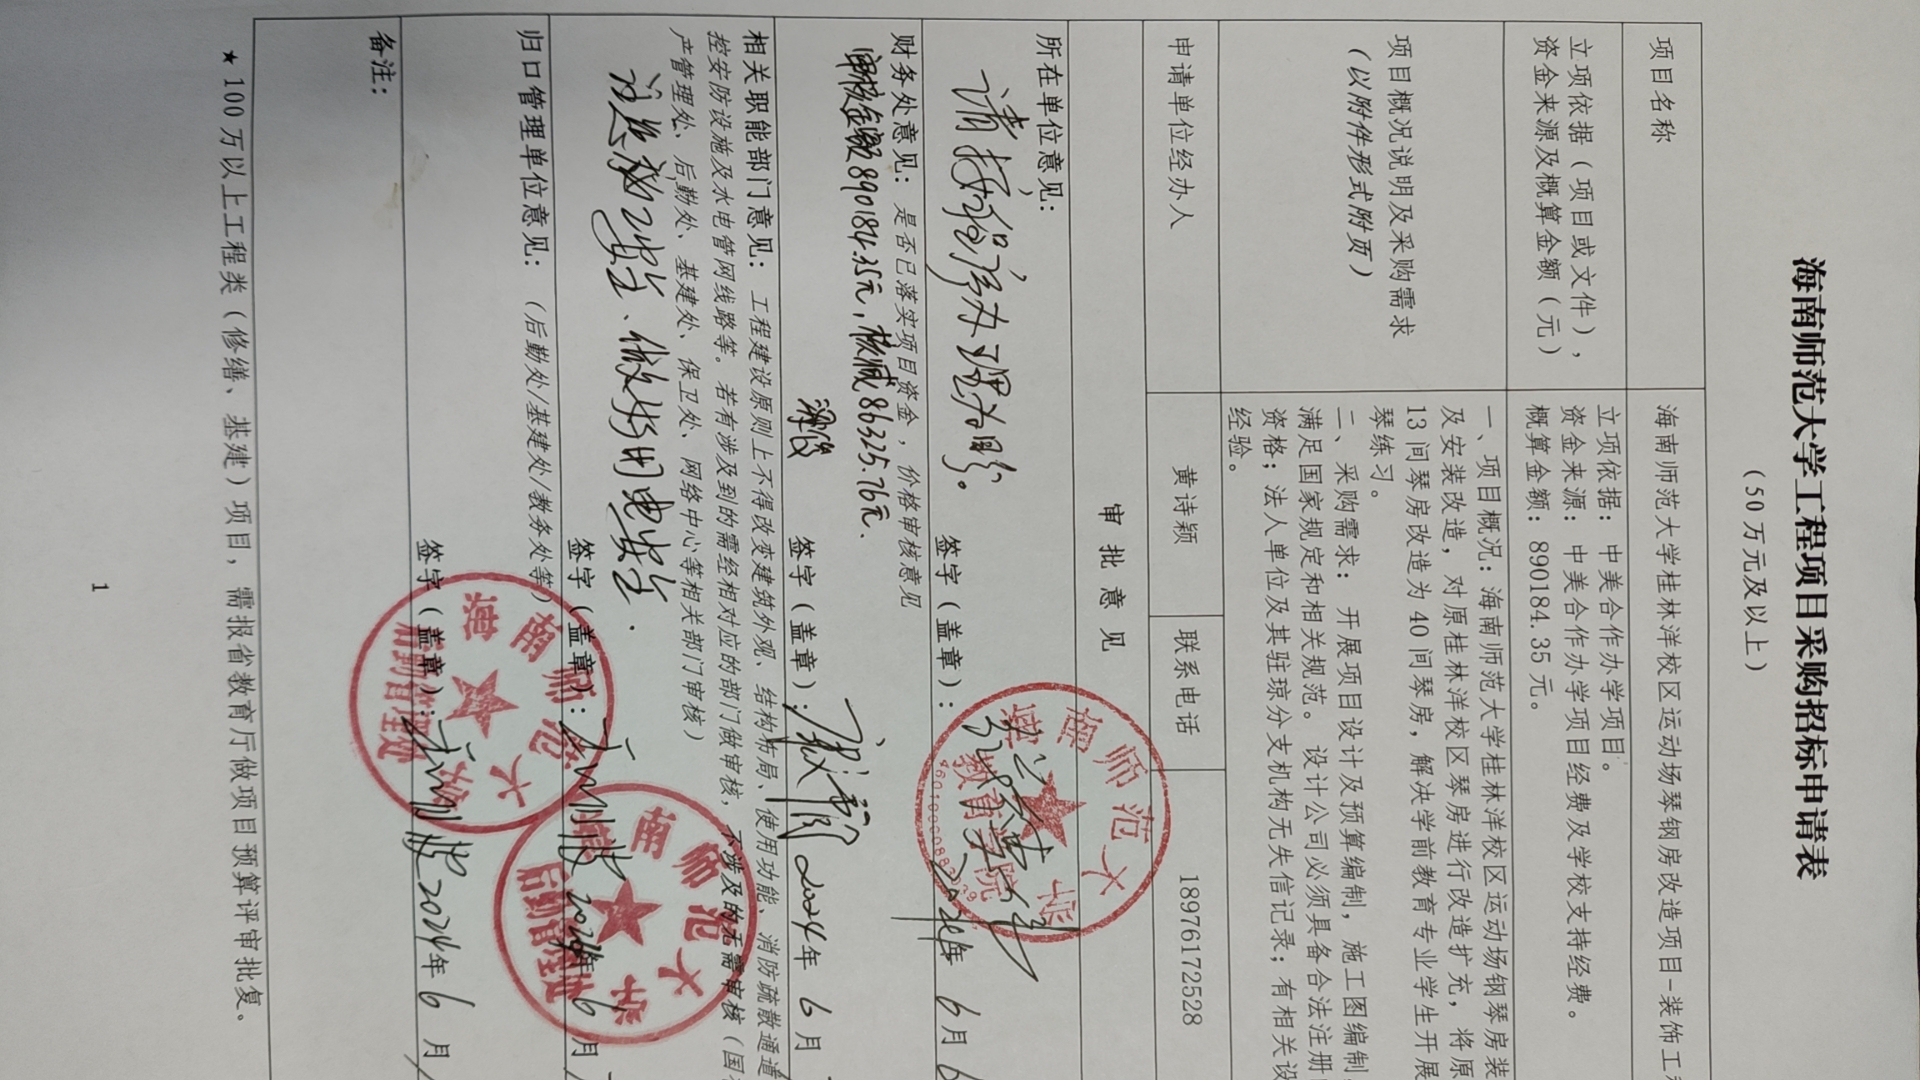 海南师范大学工程项目采购招标申请表
（50万元及以上）
项目名称
海南师范大学桂林洋校区运动场琴钢房改造项目-装饰工
立项依据（项目或文件），
资金来源及概算金额（元）
立项依据：中美合作办学项目。
资金来源：中美合作办学项目经费及学校支持经费。
概算金额：890184.35元。
项目概况说明及采购需求
（以附件形式附页）
一、项目概况：海南师范大学桂林洋校区运动场钢琴房装
及安装改造，对原桂林洋校区琴房进行改造扩充，将原
13间琴房改造为40间琴房，解决学前教育专业学生开展
琴练习。
二、采购需求：开展项目设计及预算编制，施工图编制
满足国家规定和相关规范。设计公司必须具备合法注册
资格；法人单位及其驻琼分支机构无失信记录；有相关设
经验。
申请单位经办人
黄诗颖
联系电话
18976172528
审批意见
所在单位意见：
请按程序办理为盼。
签字（盖章）：
2024年6月6
海南师范大学
教育学院
财务处意见：是否已落实项目资金，价格审核意见
审核金额890184.35元，核减86325.76元.
签字（盖章）：
2024年6月
相关职能部门意见：工程建设原则上不得改变建筑外观、结构布局、使用功能、消防疏散通道
控安防设施及水电管网线路等。若有涉及到的需经相对应的部门做审核，不涉及的无需审核（国
产管理处、后勤处、基建处、保卫处、网络中心等相关部门审核）
注意施工安全、做好用电安全.
签字（盖章）：
2024年6月
海南师范大学
归口管理单位意见：（后勤处/基建处/教务处等）
签字（盖章）：
2024年6月
海南师范大学
后勤管理处
备注：
★100万以上工程类（修缮、基建）项目，需报省教育厅做项目预算评审批复。
1